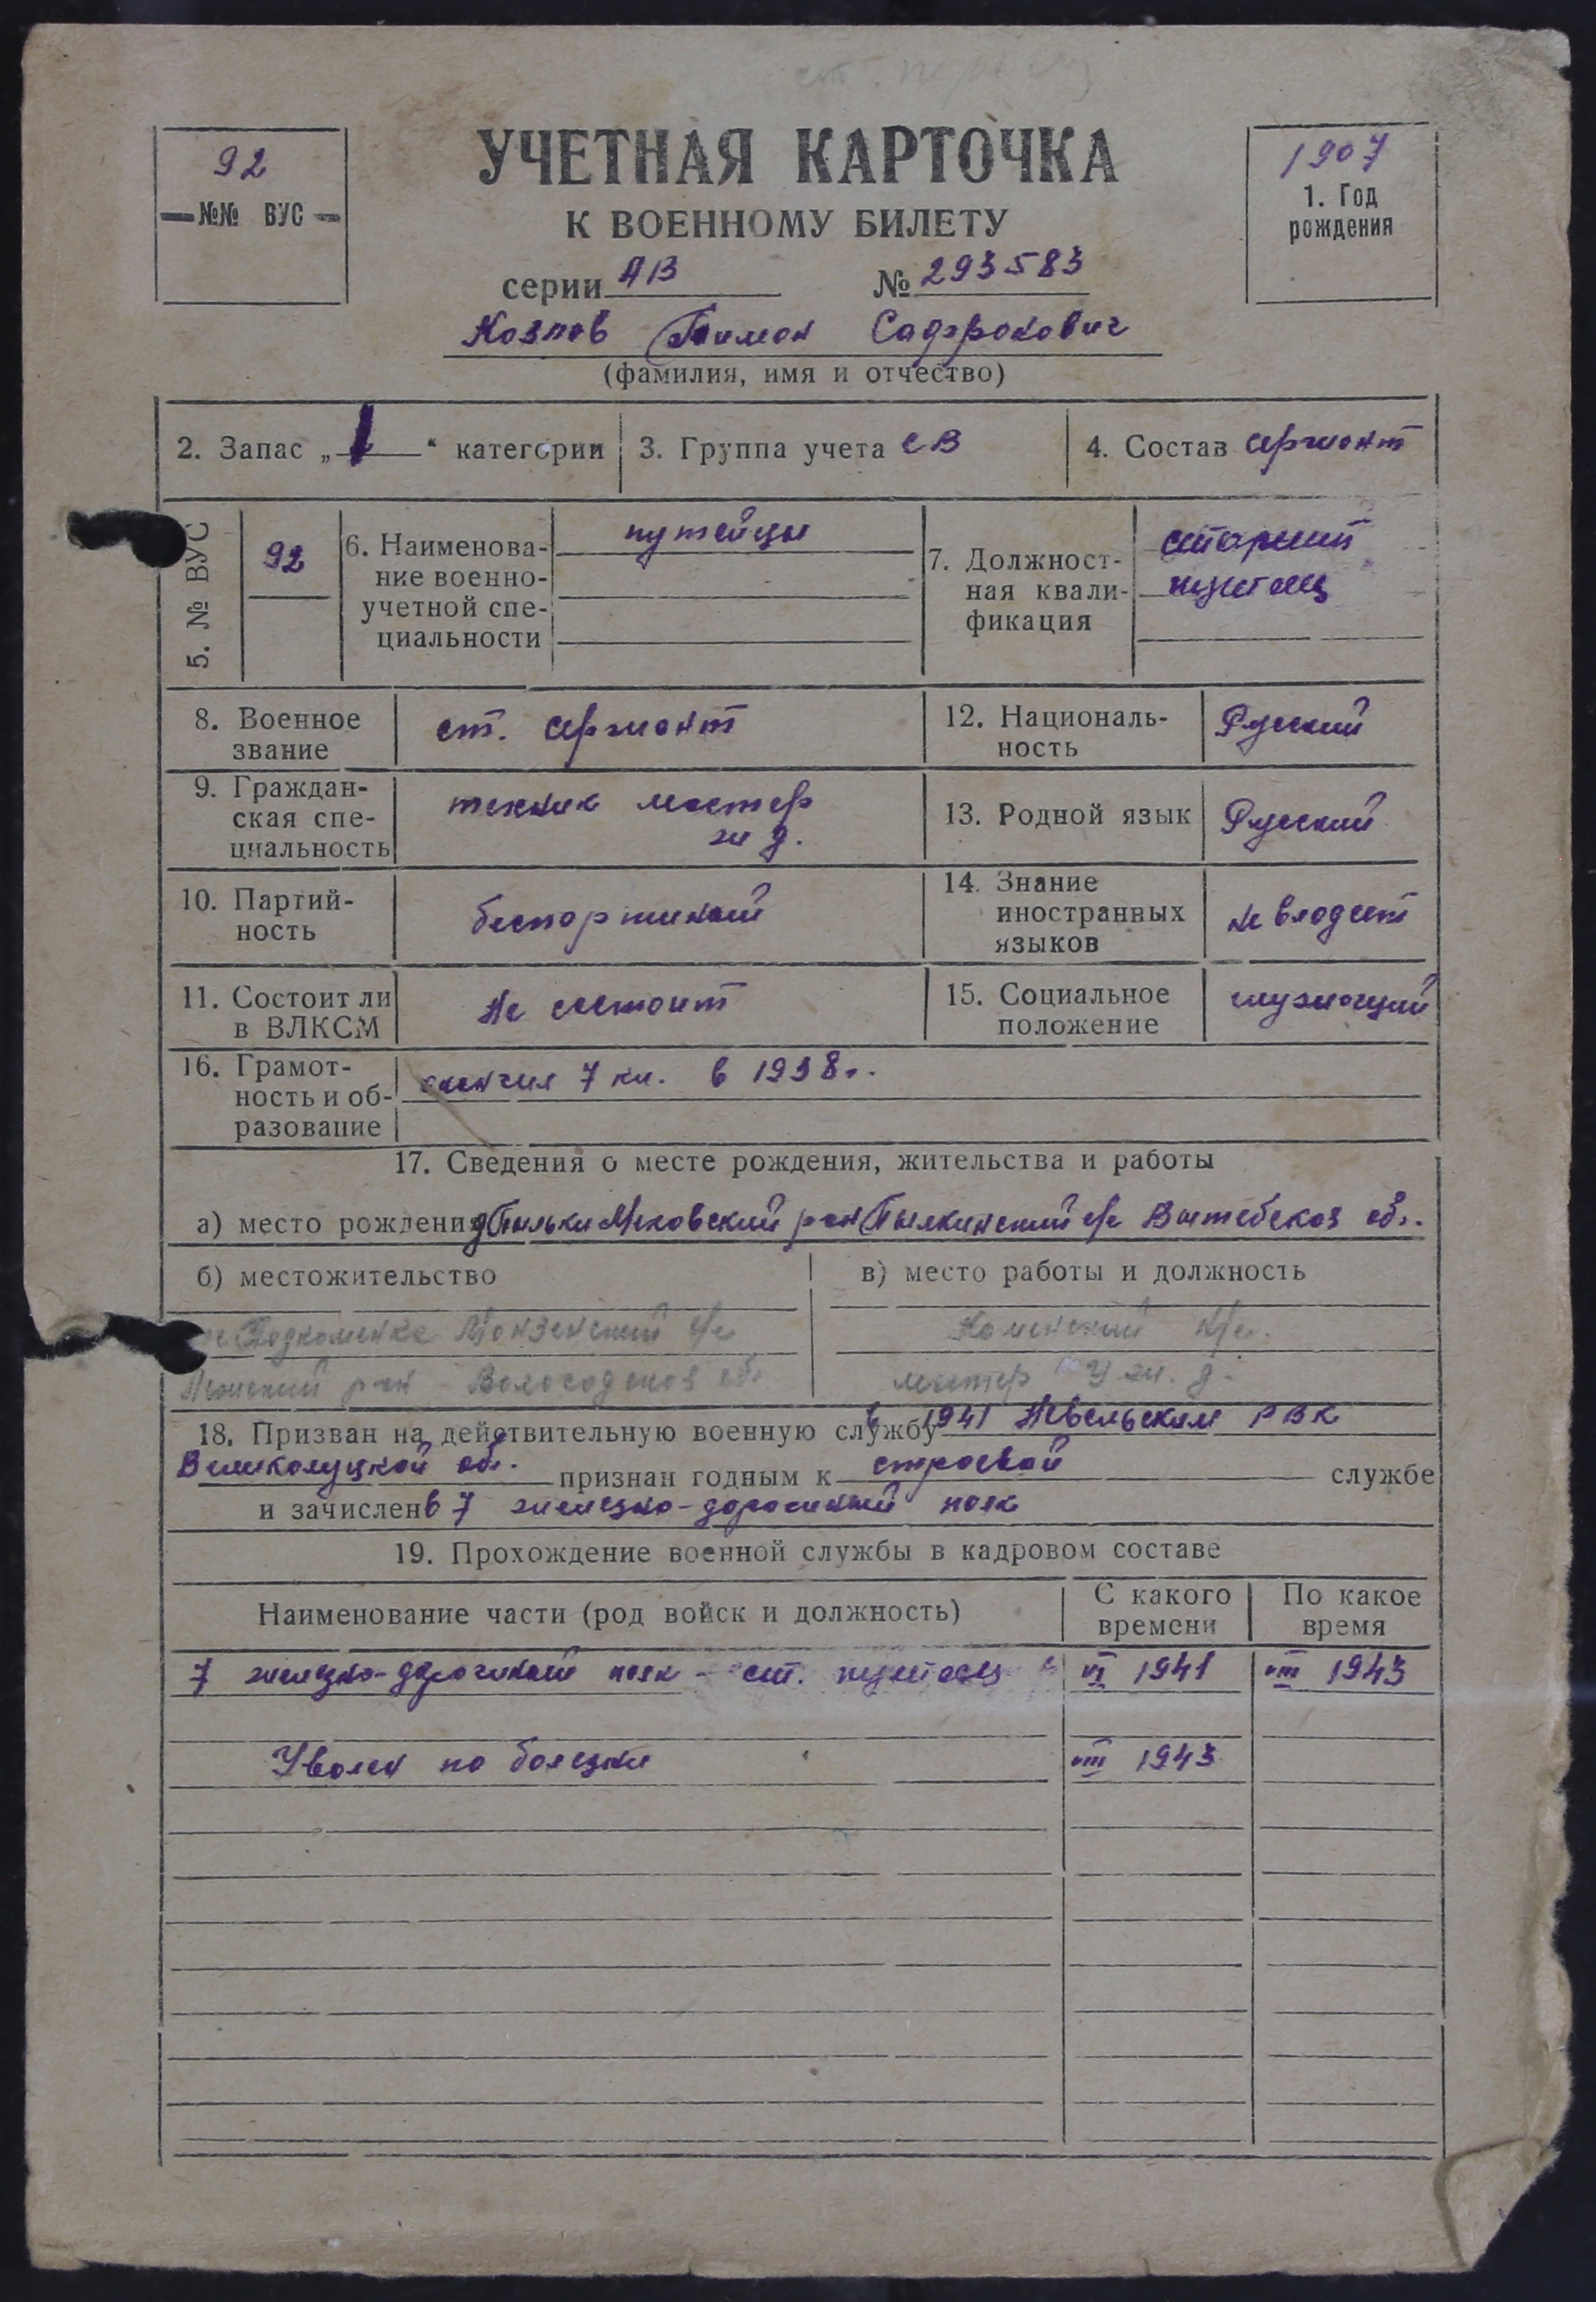 92
№№ ВУС
УЧЕТНАЯ КАРТОЧКА
К ВОЕННОМУ БИЛЕТУ
серии АВ № 293583
1907
1. Год
рождения
Козлов Тимон Сафронович
(фамилия, имя и отчество)
2. Запас „ I “ категории 3. Группа учета СВ 4. Состав сержант
5. № ВУС 92
6. Наименова-
ние военно-
учетной спе-
циальности
путейцы
7. Должност-
ная квали-
фикация
старший
путеец
8. Военное
звание
ст. сержант
12. Националь-
ность
Русский
9. Граждан-
ская спе-
циальность
техник мастер
ж д.
13. Родной язык Русский
10. Партий-
ность
беспартийный
14. Знание
иностранных
языков
не владеет
11. Состоит ли
в ВЛКСМ
Не состоит
15. Социальное
положение
служащий
16. Грамот-
ность и об-
разование
окончил 7 кл. в 1938 г.
17. Сведения о месте рождения, жительства и работы
а) место рождения рон с/с Витебская об.
б) местожительство
в) место работы и должность
с/с
рон Вологодская об.
мастер ж. д.
18. Призван на действительную военную службу в 1941 Невельским РВК
Великолуцкой обл. признан годным к строевой службе
и зачислен в 7 железно-дорожный полк
19. Прохождение военной службы в кадровом составе
Наименование части (род войск и должность)
С какого
времени
По какое
время
7 железно-дорожный полк - ст. путеец VI 1941 VIII 1943
Уволен по болезни VIII 1943